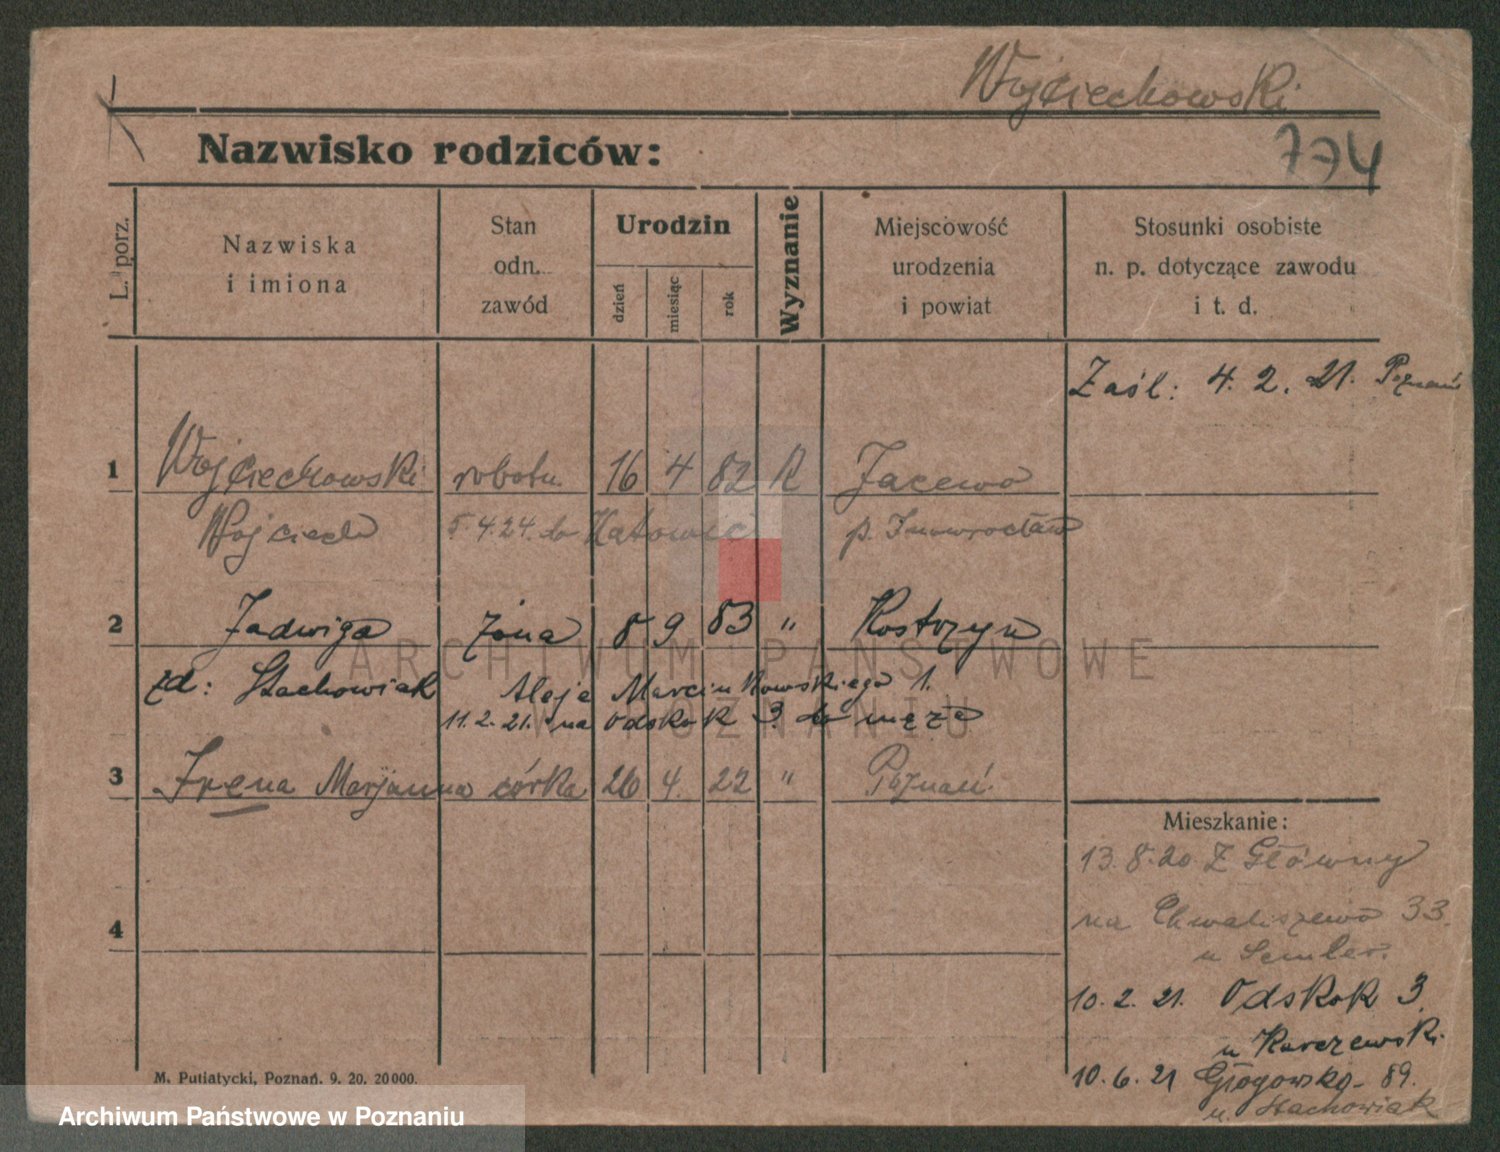 Wojciechowski
774
Nazwisko rodziców:
L. porz.
Nazwiska
i imiona
Stan
odn.
zawód
Urodzin
dzień
miesiąc
rok
Wyznanie
Miejscowość
urodzenia
i powiat
Stosunki osobiste
n. p. dotyczące zawodu
i t. d.
Zaśl: 4. 2. 21. Poznań
1 Wojciechowski robotn. 16 4 82 K Jacewo
Wojciech 5.4.24. do Katowic p. Inowrocław
2 Jadwiga żona 8 9 83 " Kostrzyn
zd: Stachowiak Aleje Marcinkowskiego 1.
11. 2. 21. na Odskok 3. do męża
3 Irena Marjanna córka 26 4. 22 " Poznań.
Mieszkanie:
13. 8. 20 Z Główny
na Chwaliszewo 33.
u Semler.
4
10. 2. 21. Odskok 3
u Karczewski.
10. 6. 21 Głogowska 89.
u. Stachowiak
M. Putiatycki, Poznań. 9. 20. 20000.
ARCHIWUM PAŃSTWOWE
W POZNANIU
Archiwum Państwowe w Poznaniu